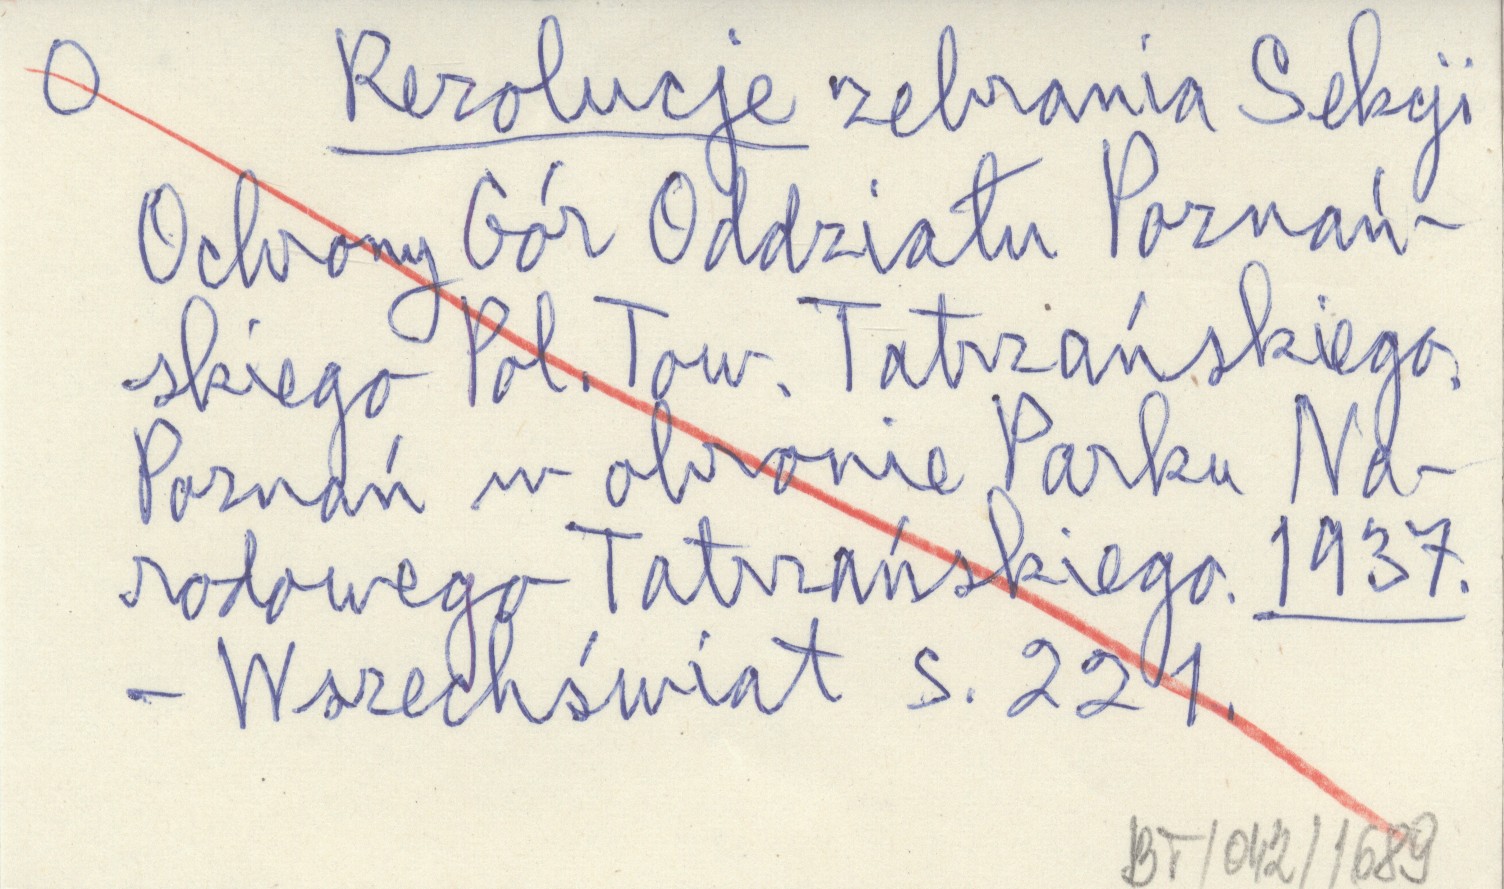 O Rezolucje zebrania Sekcji
Ochrony Gór Oddziału Poznań-
skiego Pol. Tow. Tatrzańskiego.
Poznań w obronie Parku Na-
rodowego Tatrzańskiego. 1937.
- Wszechświat s. 221.
BT/042/1689